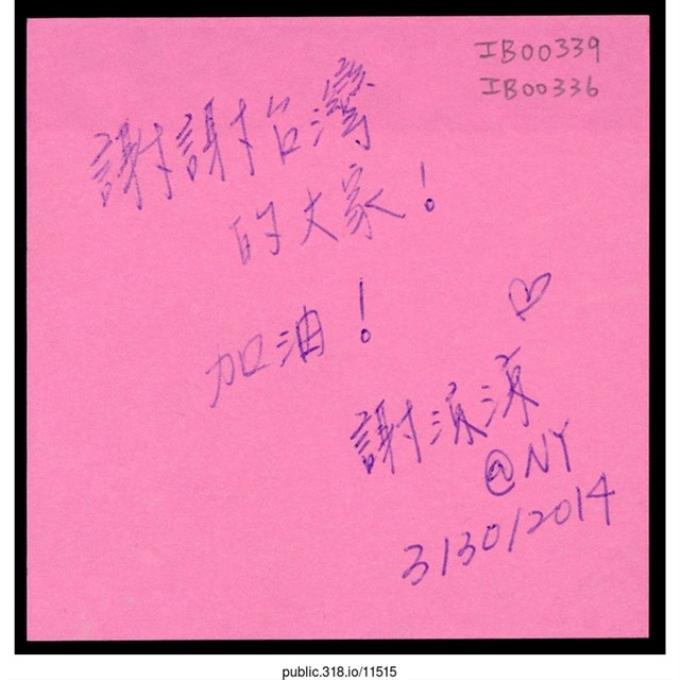 IB00339
IB00336
謝謝台灣
的大家！
加油！
謝涼涼
@NY
3/30/2014
public.318.io/11515